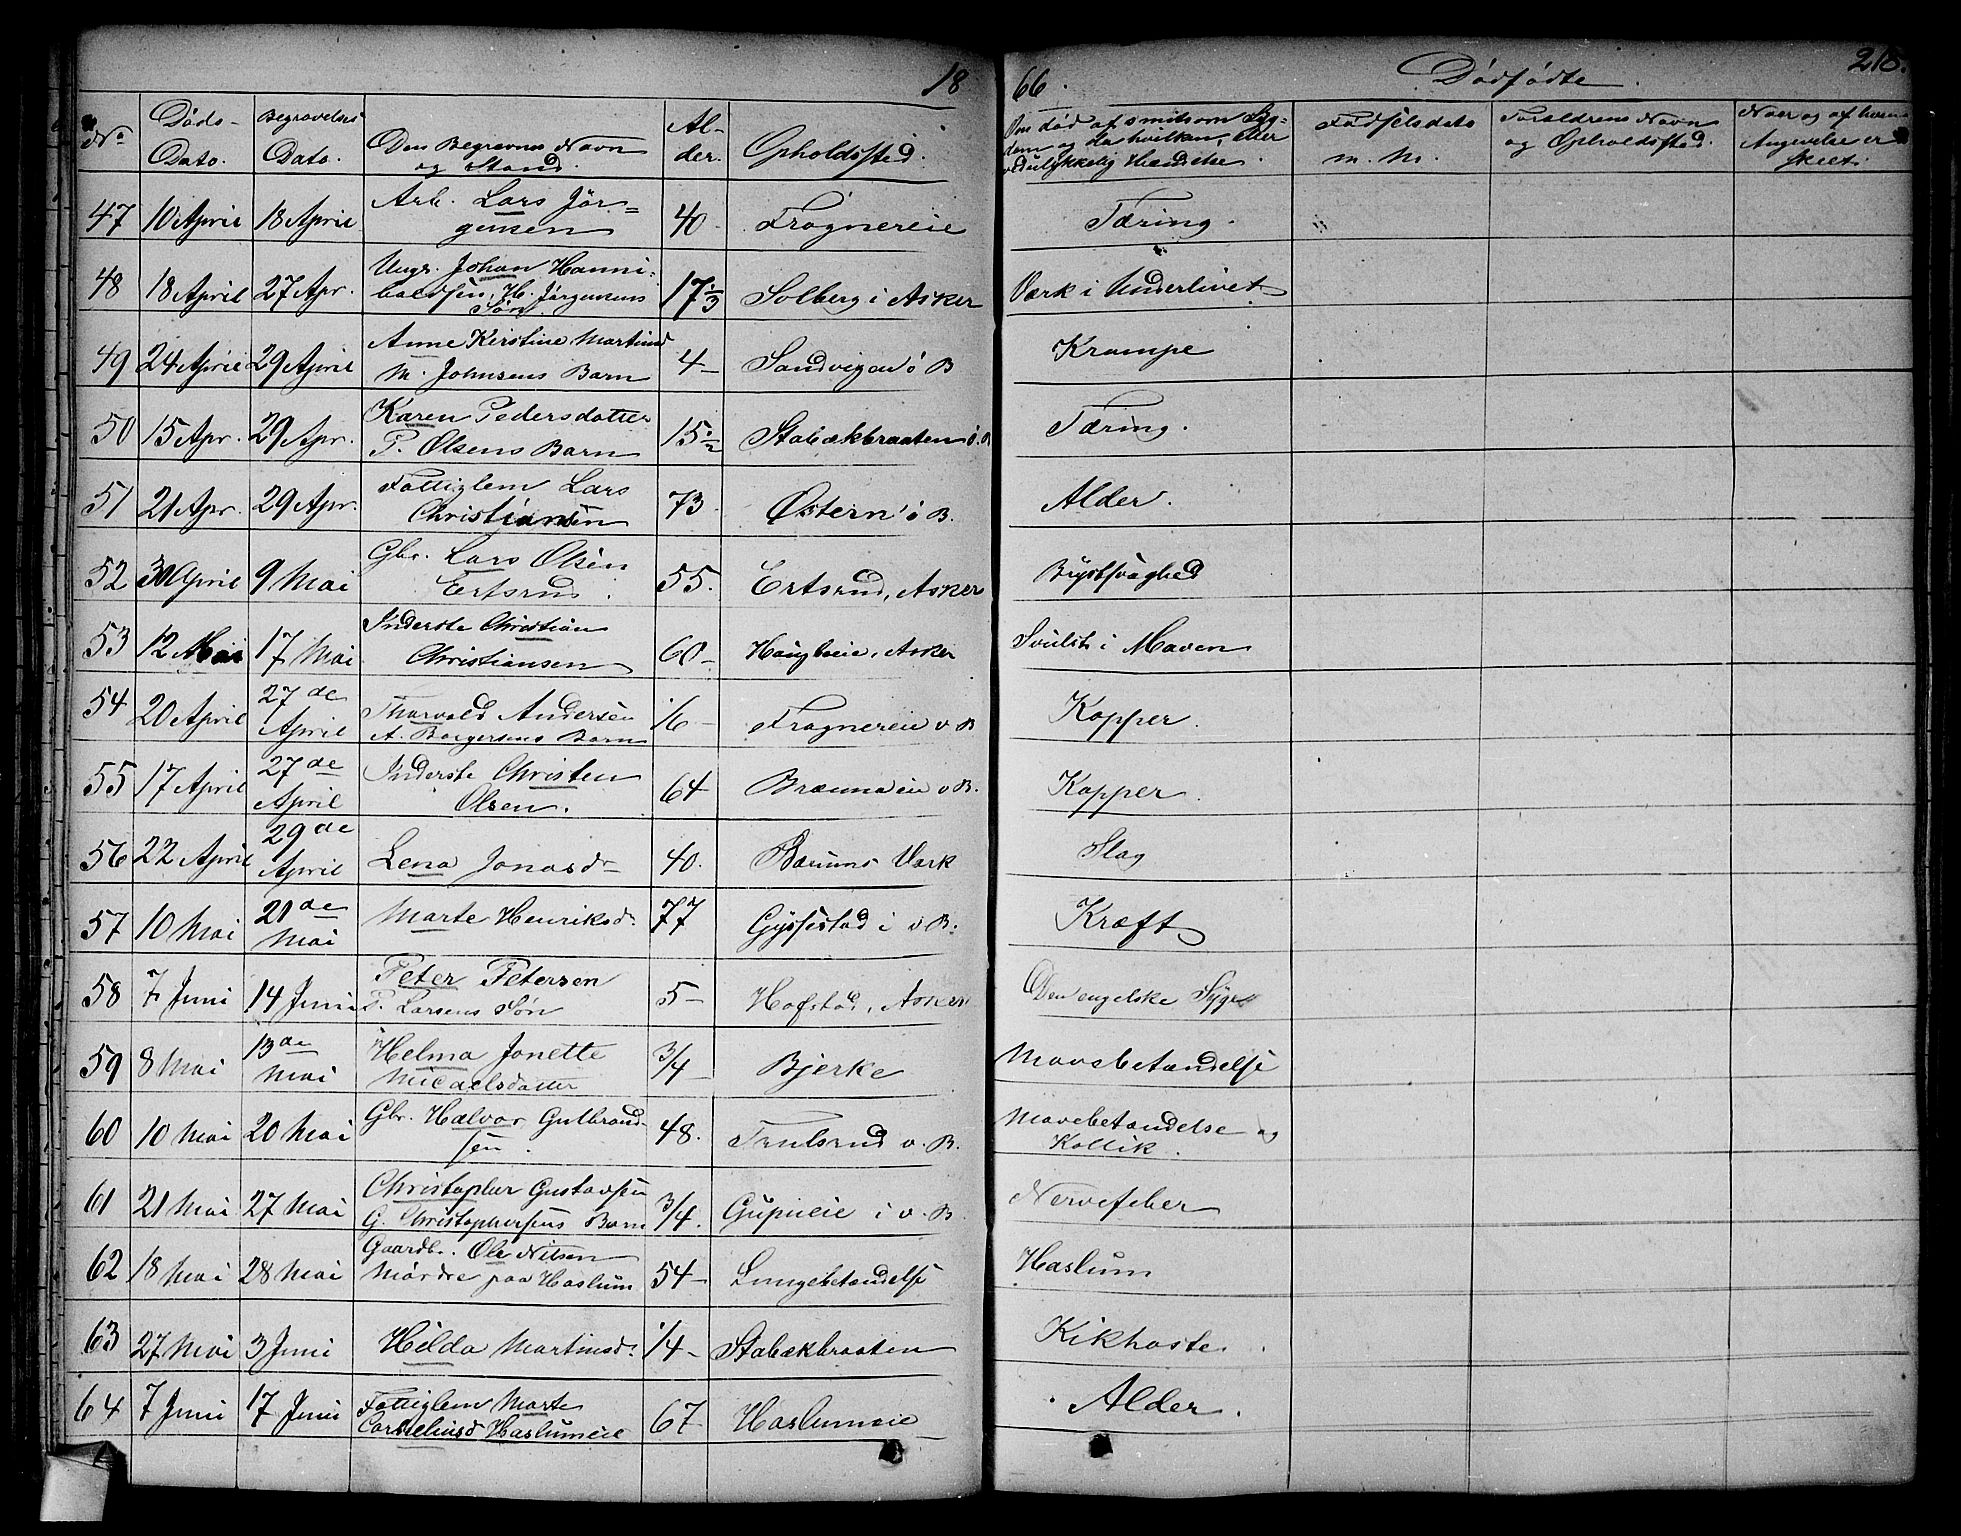 18 66. Dødfødte. 218.
No. Døds-Dato. Begravelses Dato. Den Begravnes Navn og Stand. Al-der. Opholdssted. Om død af smitsom Syg-dom og da hvilken, eller ved ulykkelig Hændelse. Fødselsdato m. M. Forældrenes Navn og Opholdssted. Naar og af hvem Angivelse er skeet.
47 10 April 18 April Arb. Lars Jör-gensen 40 Frognereie Tæring.
48 18 April 27 Apr. Ungk. Johan Hanni-baldsen, H. Jörgensens Søn 17 1/3 Solberg i Asker Værk i Underlivet
49 24 April 29 April Anne Kirstine Martinsd M. Johnsens Barn 4 Sandvigen ö B Krampe
50 15 Apr. 29 Apr. Karen Pedersdatter P. Olsens Barn 15 1/2 Stabækbraaten ö. B. Tæring.
51 21 Apr. 29 Apr. Fattiglem Lars Christiansen 73 Østern ö B. Alder.
52 30 April 9 Mai Gbr. Lars Olsen Ertsrud. 55. Ertsrud, Asker Brystsvaghed
53 12 Mai 17 Mai Inderste Christian Christiansen 60 Haugbeie, Asker Svulst i Maven
54 20 April 27de April Thorvald Andersen A. Borgersens Barn 1/6 Frognereie v B Kopper.
55 17 April 27de April Inderste Christen Olsen. 64 Brænnaeie v B. Kopper.
56 22 April 29de April Lena Jonasdr 40. Bærums Værk Slag
57 10 Mai 21de Mai Marte Henriksd. 77 Gyssestad i v B. Kræft
58 7 Juni 14 Juni Peter Petersen P. Larsens Søn 5 Hofstad, Asker Den engelske Syge
59 8 Mai 13de Mai Helma Jonette Micaelsdatter 3/4 Bjerke Mavebetændelse
60 10 Mai 20 Mai Gbr. Halvor Gulbrand-sen. 48. Trulsrud v. B. Mavebetændelse og Kollik.
61 21 Mai 27 Mai Christopher Gustavsen G. Christophersens Barn 3/4. Gupueie i v. B. Nervefeber
62 18 Mai 28 Mai Gaardbr. Ole Nilsen Mördre paa Haslum 54 Lungebetændelse Haslum
63 27 Mai 3 Juni Hilda Martinsd. 1/4 Stabækbraaten Kikhoste.
64 7 Juni 17 Juni Fattiglem Marte Corneliusd Haslumeie 67 Haslumeie Alder.